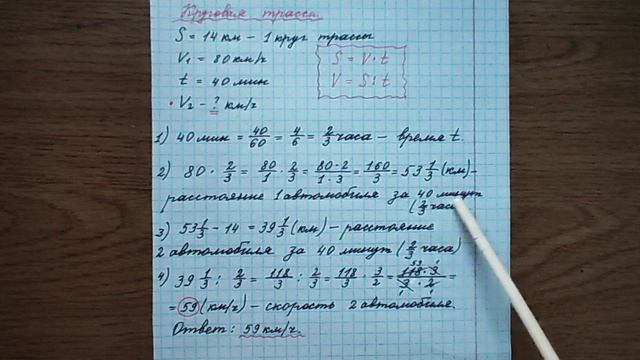 Круговая трасса.
S = 14 км – 1 круг трассы
V₁ = 80 км/ч
t = 40 мин
V₂ – ? км/ч
S = V · t
V = S : t
1) 40 мин = 40/60 = 4/6 = 2/3 часа – время t.
2) 80 · 2/3 = 80/1 · 2/3 = 80·2/1·3 = 160/3 = 53 1/3 (км) –
расстояние 1 автомобиля за 40 минут
(2/3 часа)
3) 53 1/3 – 14 = 39 1/3 (км) – расстояние
2 автомобиля за 40 минут (2/3 часа)
4) 39 1/3 : 2/3 = 118/3 : 2/3 = 118/3 · 3/2 = 118·3/3·2 =
= 59 (км/ч) – скорость 2 автомобиля.
Ответ: 59 км/ч.